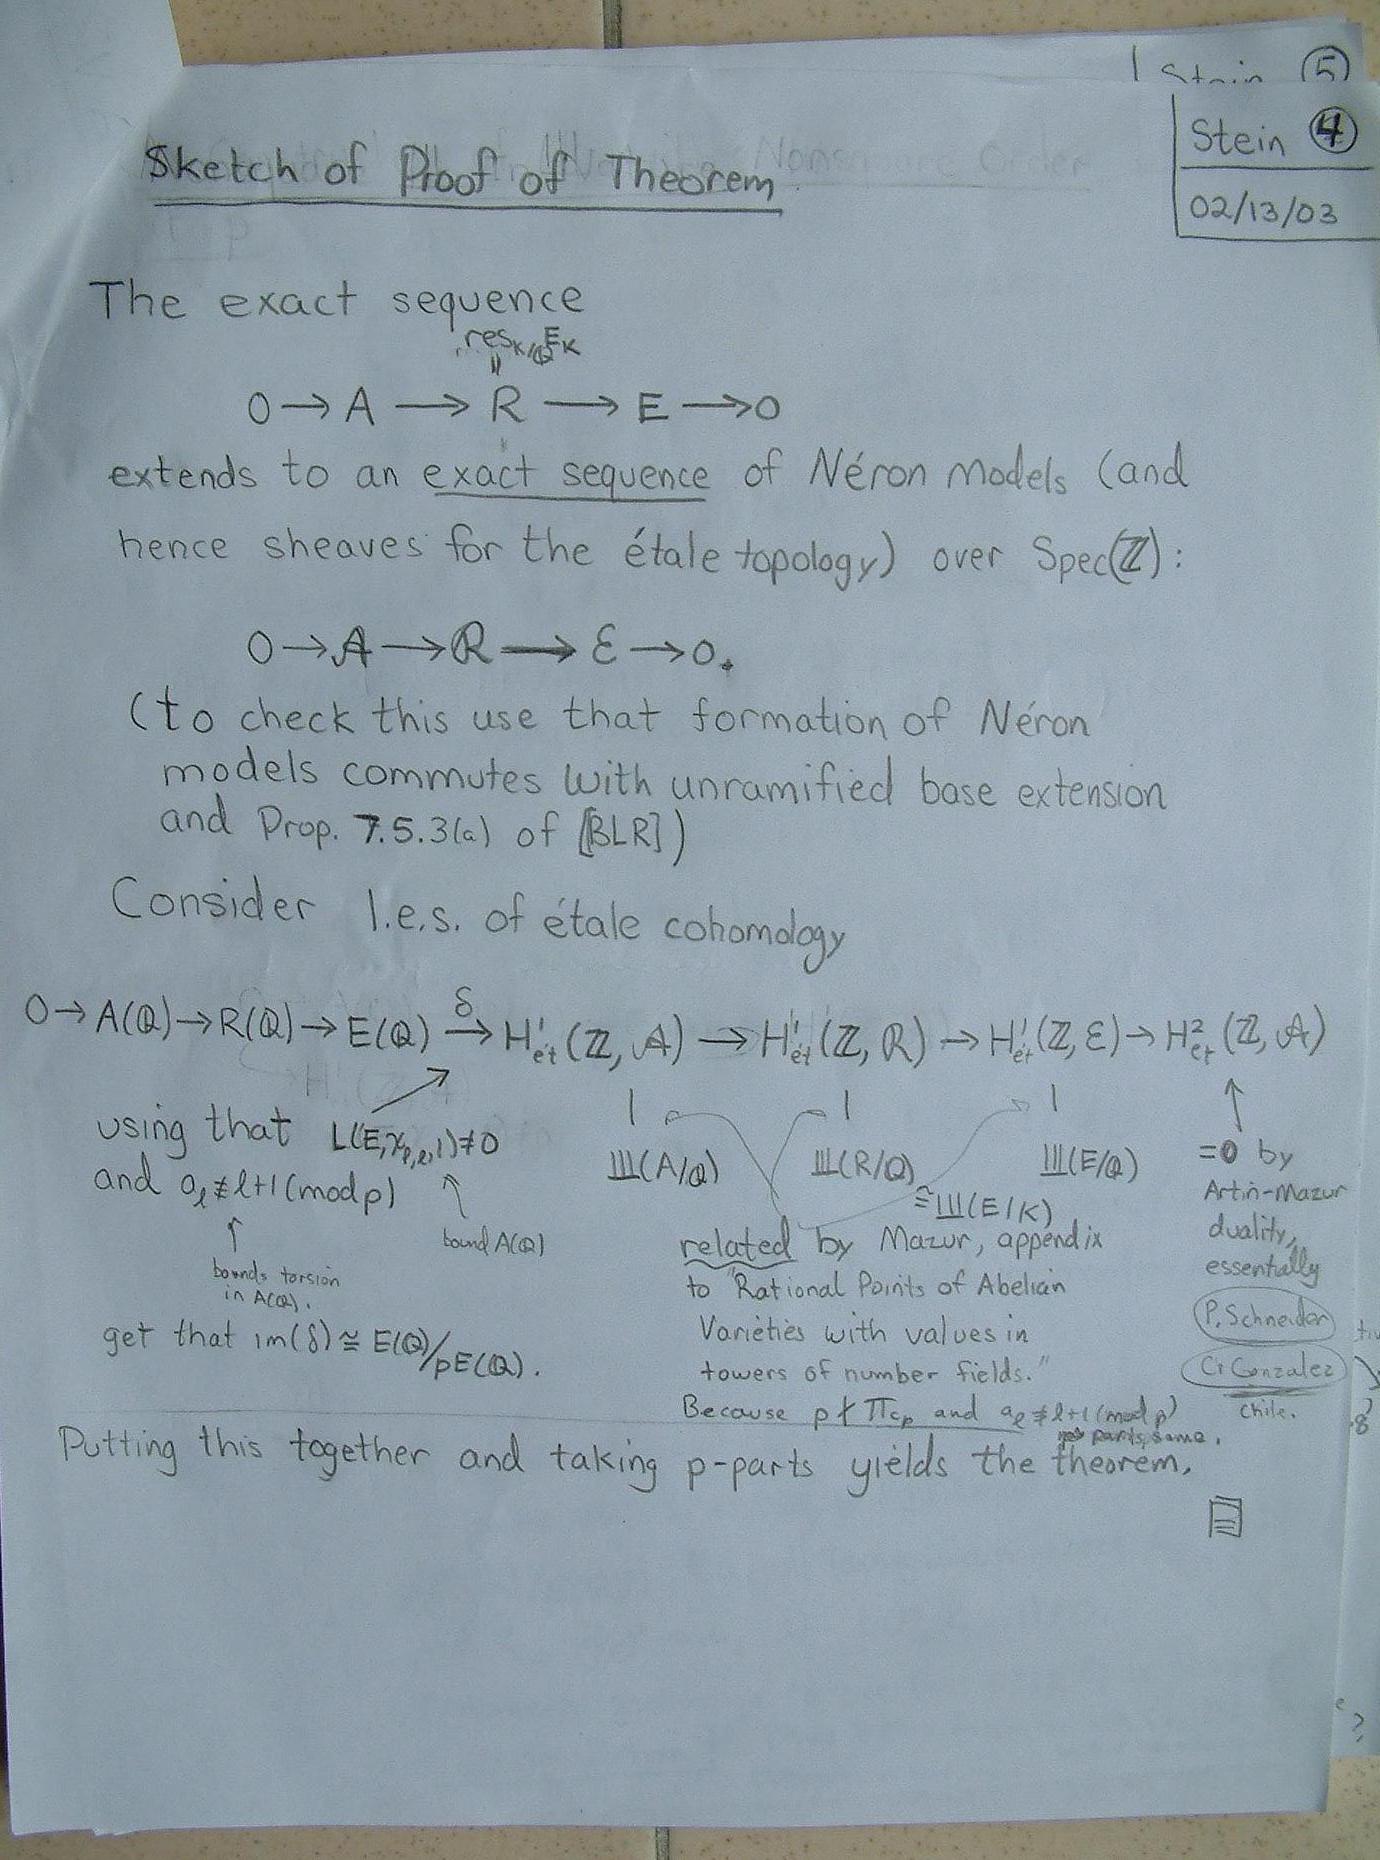 Stein ⑤
Stein ④
02/13/03
Sketch of Proof of Theorem
The exact sequence
res_{K/ℚ}E_K
॥
0 → A → R → E → 0
extends to an exact sequence of Néron models (and
hence sheaves for the étale topology) over Spec(ℤ):
0 → 𝒜 → ℛ → ℰ → 0.
(to check this use that formation of Néron
models commutes with unramified base extension
and Prop. 7.5.3(a) of [BLR])
Consider l.e.s. of étale cohomology
0 → A(ℚ) → R(ℚ) → E(ℚ) →^δ H¹_ét(ℤ, 𝒜) → H¹_ét(ℤ, ℛ) → H¹_ét(ℤ, ℰ) → H²_et(ℤ, 𝒜)
using that L(E,χ_{p,ℓ},1)≠0
and a_ℓ ≢ ℓ+1 (mod p)
bound A(ℚ)
bounds torsion
in A(ℚ).
get that im(δ) ≅ E(ℚ)/pE(ℚ).
Ш(A/ℚ) Ш(R/ℚ) Ш(E/ℚ)
≅Ш(E/K)
related by Mazur, appendix
to "Rational Points of Abelian
Varieties with values in
towers of number fields."
Because p∤∏c_p and a_ℓ ≢ ℓ+1 (mod p)
parts same.
=0 by
Artin-Mazur
duality,
essentially
P. Schneider
C. Gonzalez
Chile.
Putting this together and taking p-parts yields the theorem.